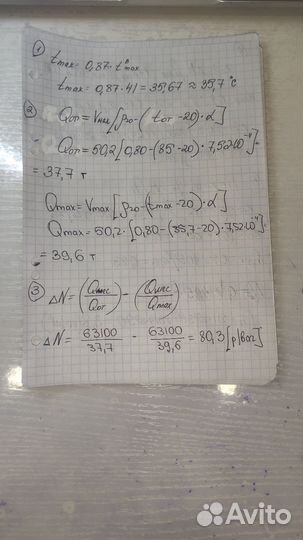 ① tmax = 0,87 · tᵃmax
tmax = 0,87 · 41 = 35,67 ≈ 35,7 °C
② Qот = Vнал [ρ20 - (tот - 20) · α]
Qот = 50,2 [0,80 - (85 - 20) · 7,52·10⁻⁴] =
= 37,7 т
Qmax = Vmax [ρ20 - (tmax - 20) · α]
Qmax = 50,2 · [0,80 - (35,7 - 20) · 7,52·10⁻⁴] =
= 39,6 т
③ ΔN = (Qмес/Qот) - (Qмес/Qmax)
ΔN = 63100/37,7 - 63100/39,6 = 80,3 [р/ваг]
Avito